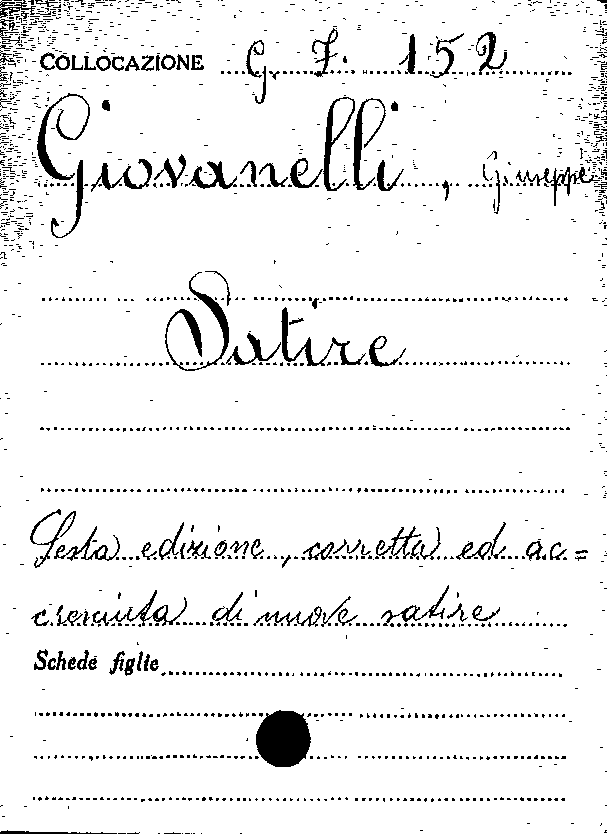 COLLOCAZIONE G. F. 152
Giovanelli, Giuseppe
Satire
Sesta edizione, corretta ed ac=
cresciuta di nuove satire
Schede figlie